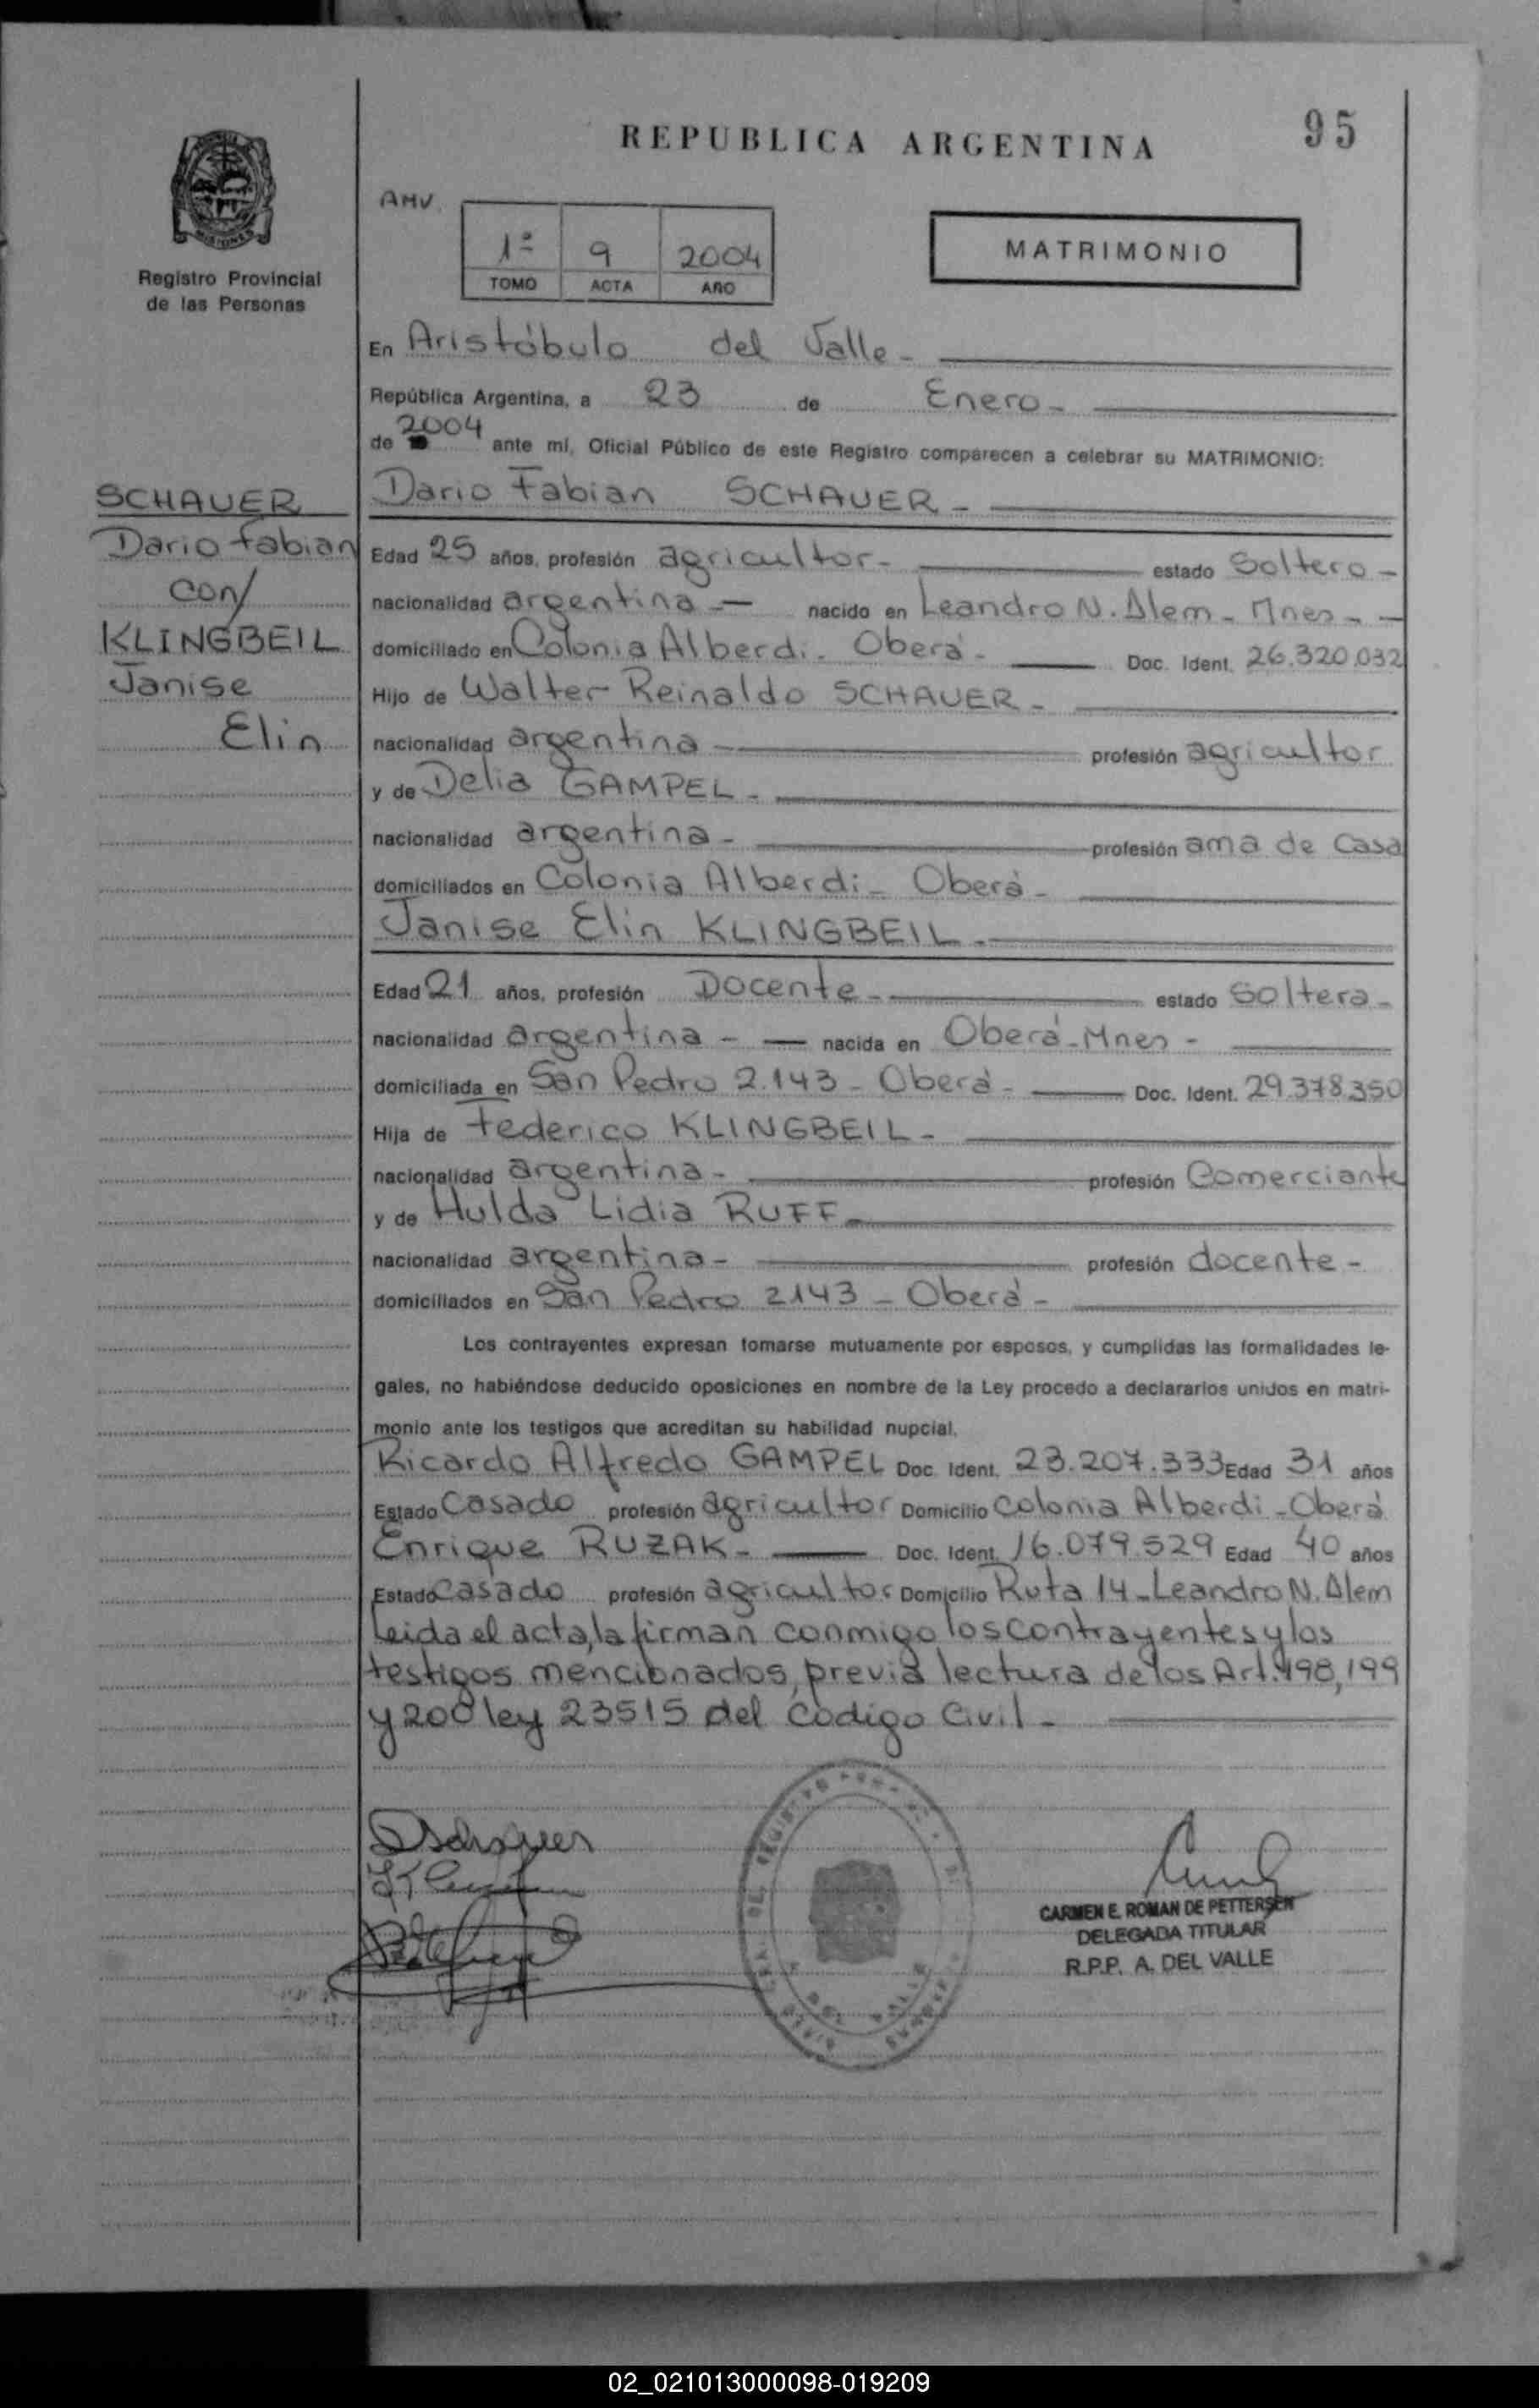 REPUBLICA ARGENTINA
95
MISIONES
Registro Provincial
de las Personas
AMV.
1º 9 2004
TOMO ACTA AÑO
MATRIMONIO
En Aristóbulo del Valle-
República Argentina, a 23 de Enero-
de 2004 ante mí, Oficial Público de este Registro comparecen a celebrar su MATRIMONIO:
SCHAUER
Dario Fabian
con/
KLINGBEIL
Janise
Elin
Dario Fabian SCHAUER-
Edad 25 años, profesión agricultor- estado Soltero-
nacionalidad argentina- nacido en Leandro N. Alem- Mnes-
domiciliado en Colonia Alberdi- Oberá- Doc. Ident. 26.320.032
Hijo de Walter Reinaldo SCHAUER-
nacionalidad argentina- profesión agricultor
y de Delia GAMPEL-
nacionalidad argentina- profesión ama de casa
domiciliados en Colonia Alberdi- Oberá-
Janise Elin KLINGBEIL-
Edad 21 años, profesión Docente- estado Soltera-
nacionalidad argentina- nacida en Oberá-Mnes-
domiciliada en San Pedro 2.143- Oberá- Doc. Ident. 29.378.350
Hija de Federico KLINGBEIL-
nacionalidad argentina- profesión Comerciante
y de Hulda Lidia RUFF-
nacionalidad argentina- profesión docente-
domiciliados en San Pedro 2143- Oberá-
Los contrayentes expresan tomarse mutuamente por esposos, y cumplidas las formalidades le-
gales, no habiéndose deducido oposiciones en nombre de la Ley procedo a declararlos unidos en matri-
monio ante los testigos que acreditan su habilidad nupcial.
Ricardo Alfredo GAMPEL Doc. Ident. 23.207.333 Edad 31 años
Estado Casado profesión agricultor Domicilio Colonia Alberdi-Oberá
Enrique RUZAK- Doc. Ident. 16.079.529 Edad 40 años
Estado Casado profesión agricultor Domicilio Ruta 14-Leandro N. Alem
Leida el acta, la firman conmigo los contrayentes y los
testigos mencionados, previa lectura de los Art. 198, 199
y 200 ley 23515 del Código Civil-
DSchauer
CARMEN E. ROMAN DE PETTERSEN
DELEGADA TITULAR
R.P.P. A. DEL VALLE
02_021013000098-019209